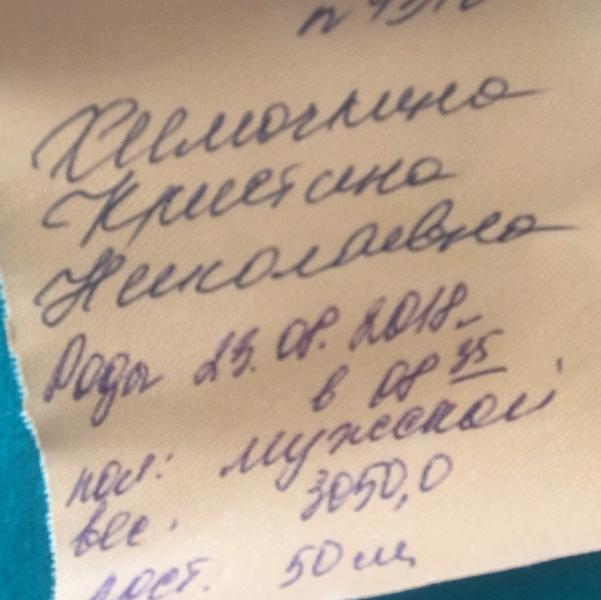 Химочкина
Кристина
Николаевна
Роды 23.08.2018г.
в 08 35
пол: мужской
вес. 3050,0
рост. 50 см